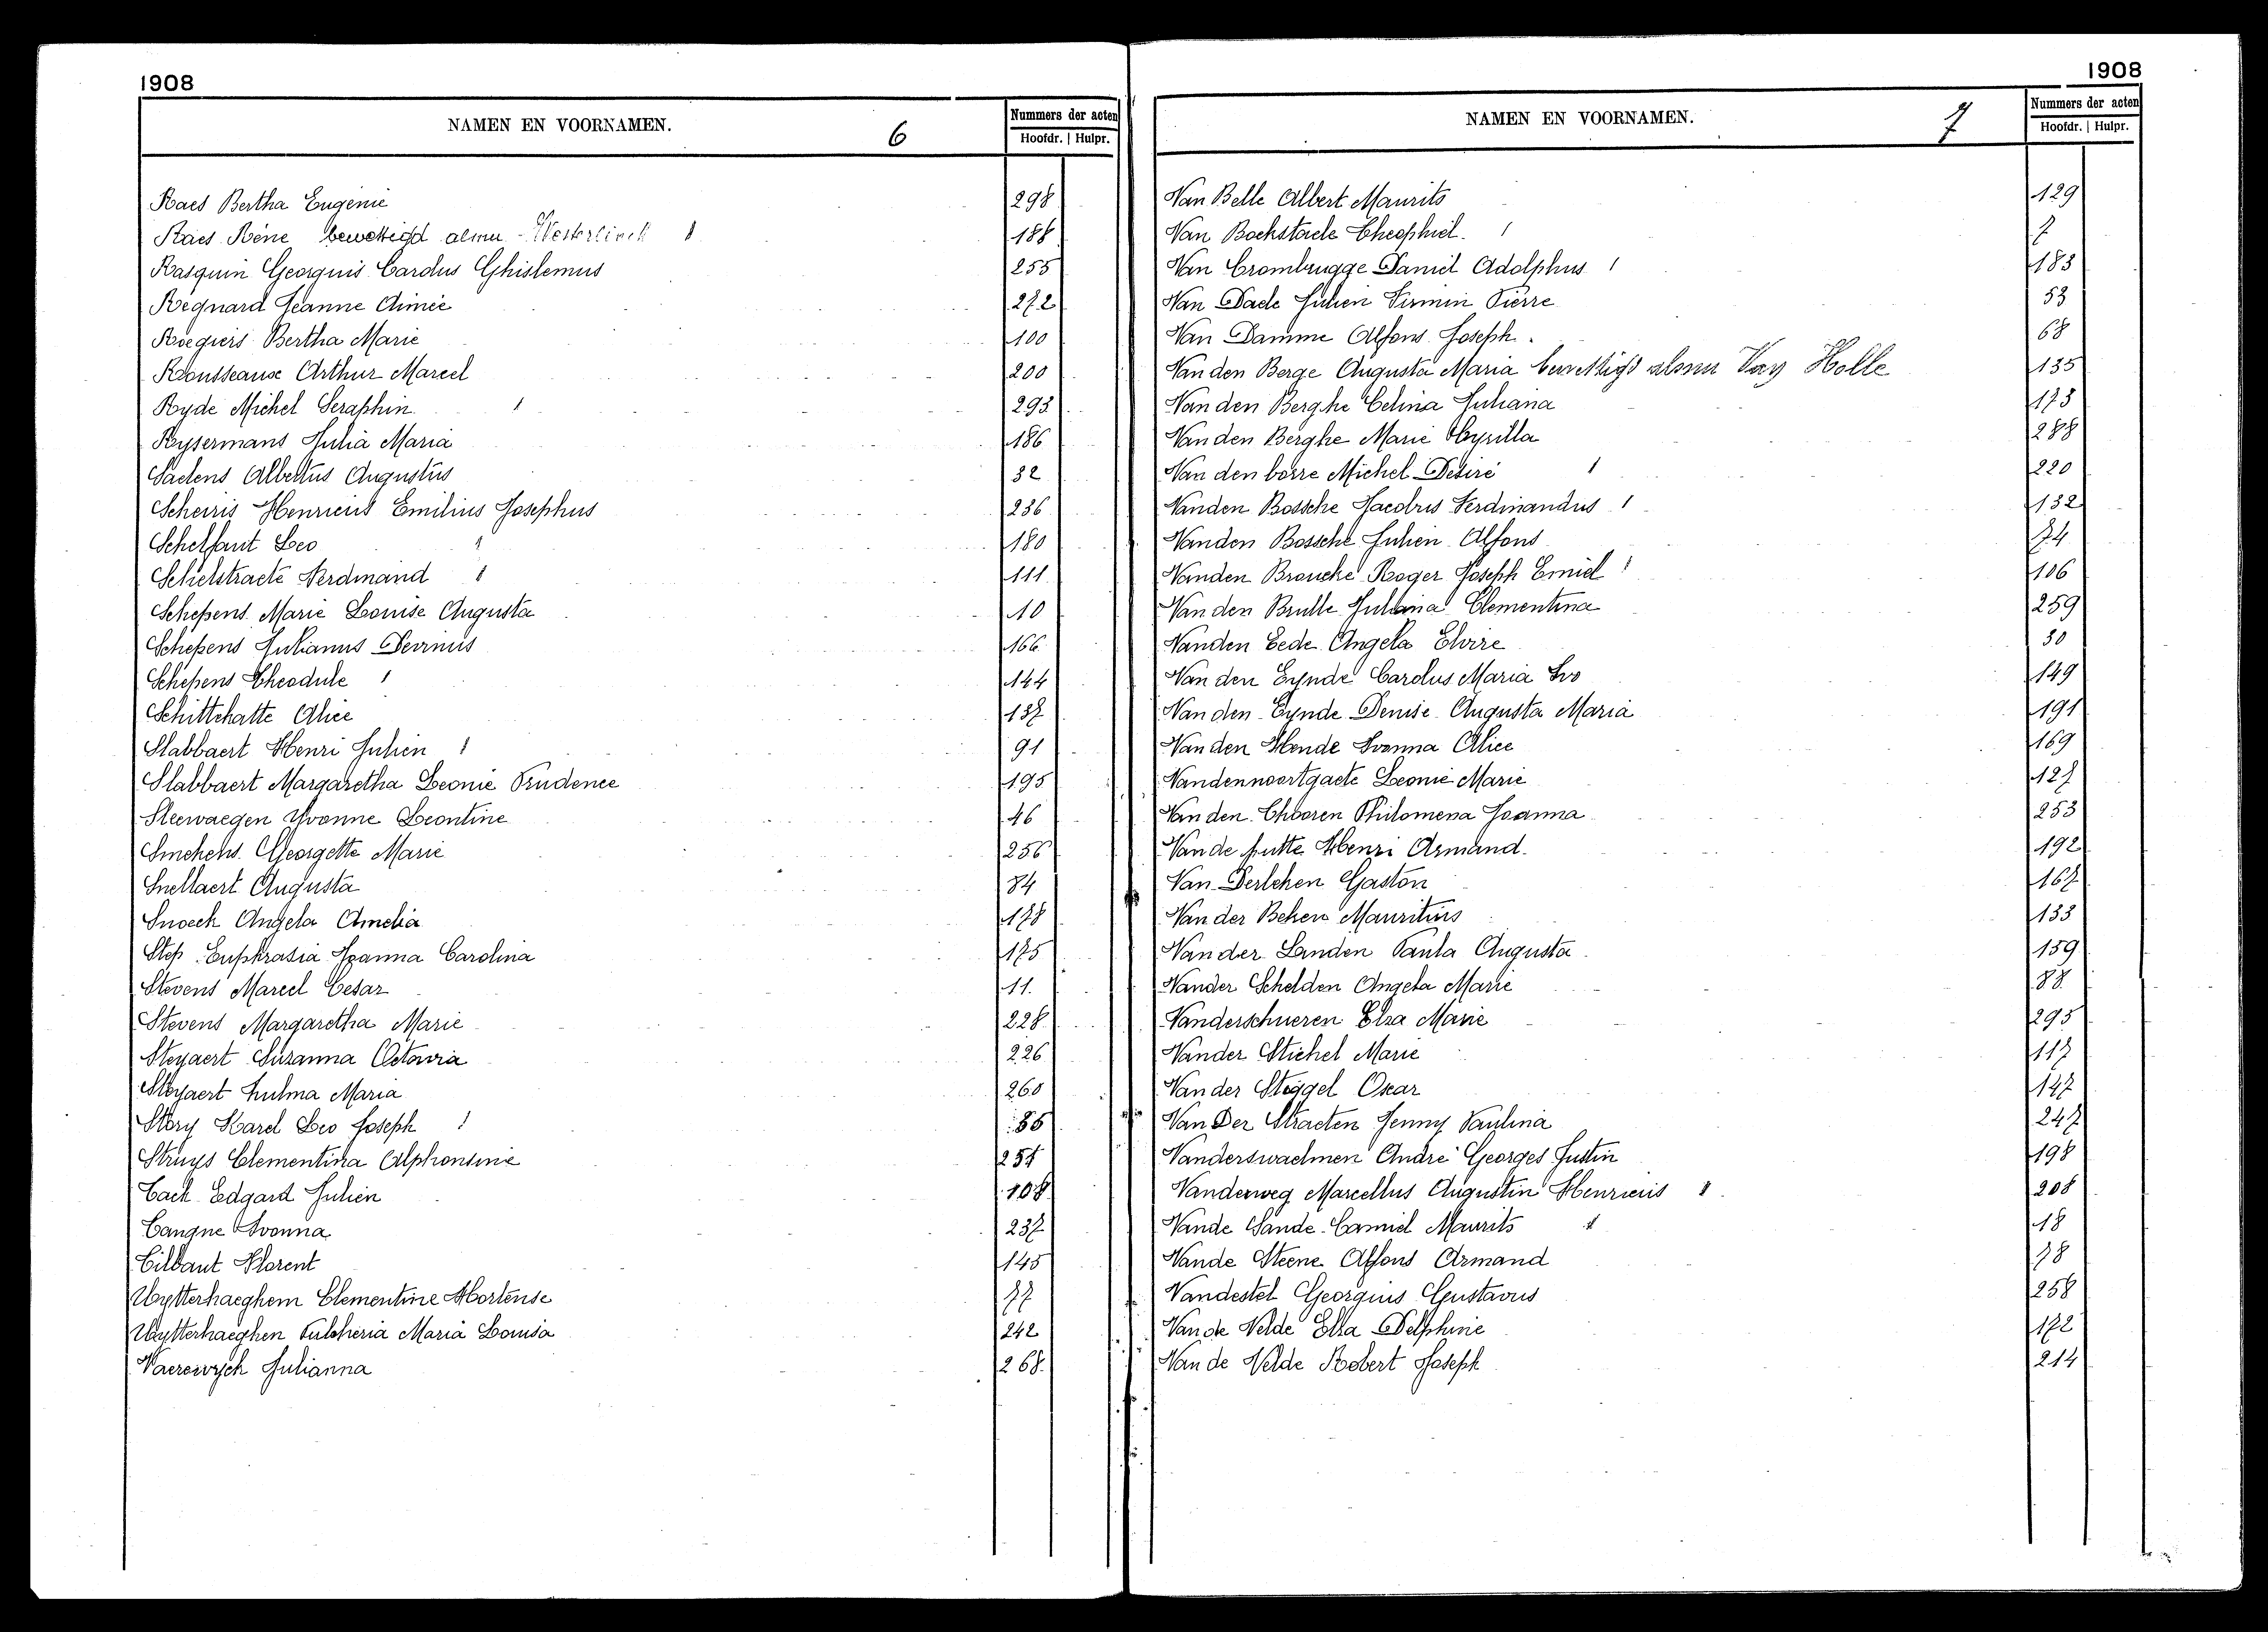 1908
NAMEN EN VOORNAMEN. 6 Nummers der acten
Hoofdr. | Hulpr.
Raes Bertha Eugenie 298
Raes Réné bewettigd als nu Westerlinck 188
Rasquin Georguis Carolus Ghislenus 255
Regnard Jeanne Aimée 272
Roegiers Bertha Marie 100
Rousseause Arthur Marcel 200
Ryde Michel Seraphin 293
Rysermans Julia Maria 186
Saelens Albertus Augustus 32
Scheiris Henricus Emilius Josephus 236
Schelfaut Leo 180
Schelstraete Ferdinand 111
Schepens Marie Louise Augusta 10
Schepens Julianus Sevrinus 166
Schepens Theodule 144
Schittekatte Alice 137
Slabbaert Henri Julien 91
Slabbaert Margaretha Leonie Prudence 195
Sleewaegen Yvonne Leontine 46
Smekens Georgette Marie 256
Snellaert Augusta 84
Snoeck Angela Amelia 178
Step Euphrasia Joanna Carolina 175
Stevens Marcel Cesar 11
Stevens Margaretha Marie 228
Steyaert Suzanna Octavia 226
Steyaert Zulma Maria 260
Story Karel Leo Joseph 86
Struys Clementina Alphonsine 251
Tack Edgard Julien 108
Tanqne Ivonna 237
Tilbaut Florent 145
Uytterhaeghem Clementine Hortense 77
Uytterhaeghen Pulcheria Maria Louisa 242
Vaerewyck Julianna 268
1908
NAMEN EN VOORNAMEN. 7 Nummers der acten
Hoofdr. | Hulpr.
Van Belle Albert Maurits 129
Van Bockstaele Theophiel 7
Van Crombrugge Daniel Adolphus 183
Van Daele Julien Firmin Pierre 53
Van Damme Alfons Joseph 68
Van den Berge Augusta Maria bewettigd als nu Van Holle 135
Van den Berghe Celina Juliana 173
Van den Berghe Marie Cyrilla 288
Van den borre Michel Désiré 220
Vanden Bossche Jacobus Ferdinandus 132
Vanden Bossche Julien Alfons 74
Vanden Broucke Roger Joseph Emiel 106
Van den Brulle Juliana Clementina 259
Vanden Eede Angela Elvire 30
Van den Eynde Carolus Maria Ivo 149
Van den Eynde Denise Augusta Maria 191
Van den Hende Ivonna Alice 169
Vandennoortgaete Leonie Marie 127
Van den Thooren Philomena Joanna 253
Van de putte Henri Armand 192
Van Derlehen Gaston 167
Van der Beken Mauritius 133
Van der Linden Paula Augusta 159
Vander Schelden Angela Marie 88
Vanderschueren Elza Marie 295
Vander Stichel Marie 117
Van der Steggel Oscar 147
Van Der Straeten Jenny Paulina 247
Vanderswaelmen André Georges Justin 198
Vanderweg Marcellus Augustin Henricus 208
Vande Sande Camiel Maurits 18
Vande Steene Alfons Armand 78
Vandestel Georgius Gustavus 258
Van de Velde Elza Delphine 172
Van de Velde Robert Joseph 214